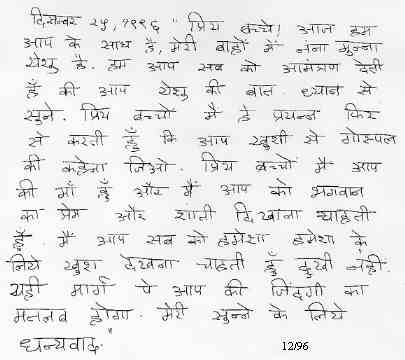 दिसम्बर २५, १९९६ " प्रिय बच्चे! आज हम
आप के साथ है, मेरी बाहों में नना मुन्ना
येशु है. हम आप सब को आमंत्रण देती
हूँ की आप येशु की बात ध्यान से
सुने. प्रिय बच्चों मै हे प्रयत्न फिर
से करती हूँ कि आप खुशी से गोस्पल
की कहेना जिओ. प्रिय बच्चों मै आप
की माँ हूँ और मैं आप को भगवान
का प्रेम और शांती दिखाना चाहती
हूँ. मैं आप सब को हमेशा हमेशा के
लिये खुश देखना चाहती हूँ दुखी नही.
यही मार्ग पे आप की जिंदगी का
मतलब होगा. मेरी सुनने के लिये
धन्यवाद."
12/96